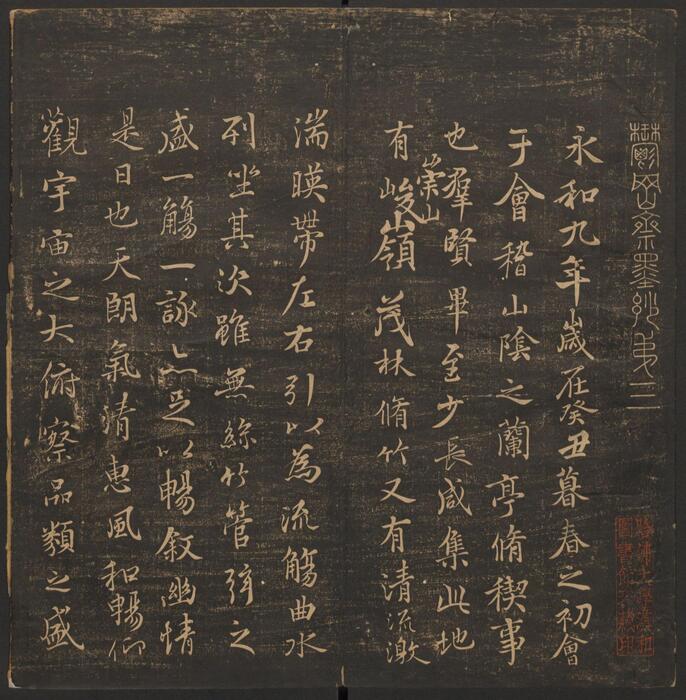 鬱岡齋墨妙第三
永和九年歲在癸丑暮春之初會
于會稽山陰之蘭亭脩稧事
也羣賢畢至少長咸集此地
有崇山峻嶺茂林脩竹又有清流激
湍暎帶左右引以為流觴曲水
列坐其次雖無絲竹管弦之
盛一觴一詠亦足以暢敘幽情
是日也天朗氣清惠風和暢仰
觀宇宙之大俯察品類之盛